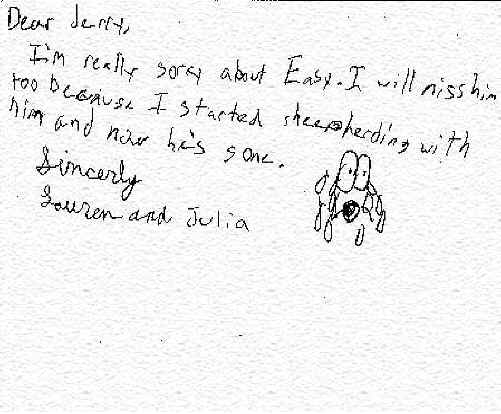 Dear Jerry,
I'm really sorry about Easy. I will miss him
too because I started sheepherding with
him and now he's gone.
Sincerly
Lauren and Julia